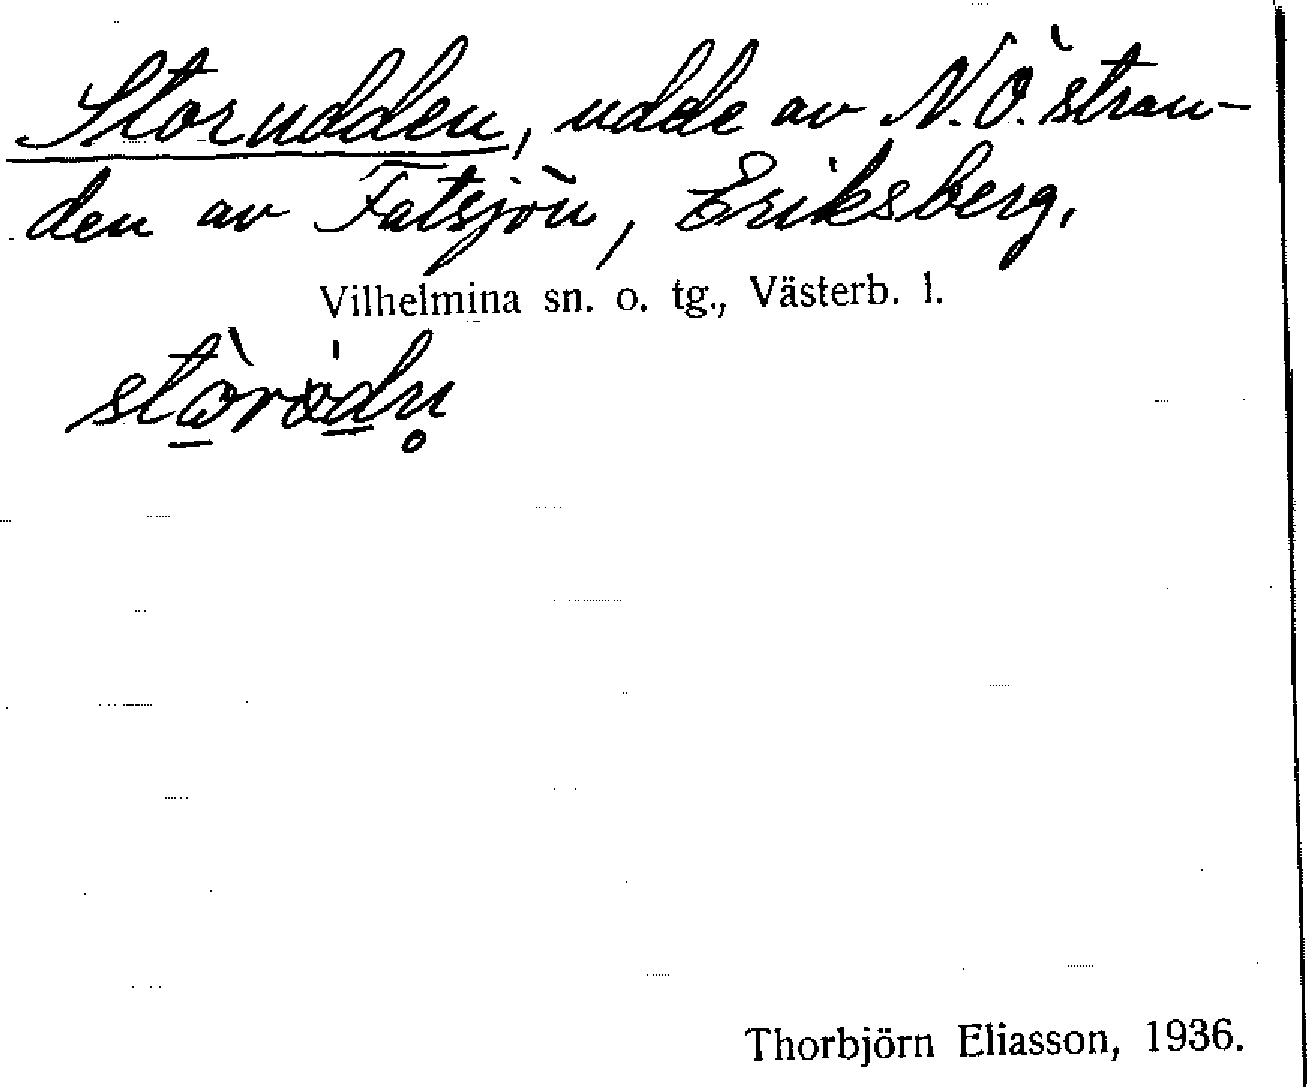 Storudden, udde av N.Ö. stran-
den av Fatsjön, Eriksberg.
Vilhelmina sn. o. tg., Västerb. l.
Thorbjörn Eliasson, 1936.